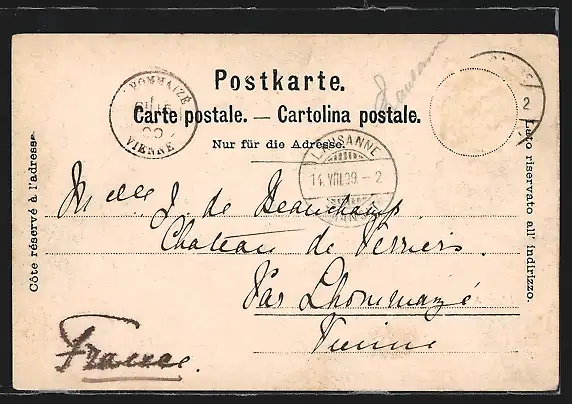 Lausanne
Postkarte.
Carte postale. — Cartolina postale.
Nur für die Adresse.
Côte réservé à l'adresse.
Lato riservato all' indirizzo.
LHOMMAIZÉ
VIENNE
LAUSANNE
14. VIII. 99. – 2
2
Melle J. de Beauchamp
Chateau de Verriers.
Par Lhommaizé
Vienne
France.